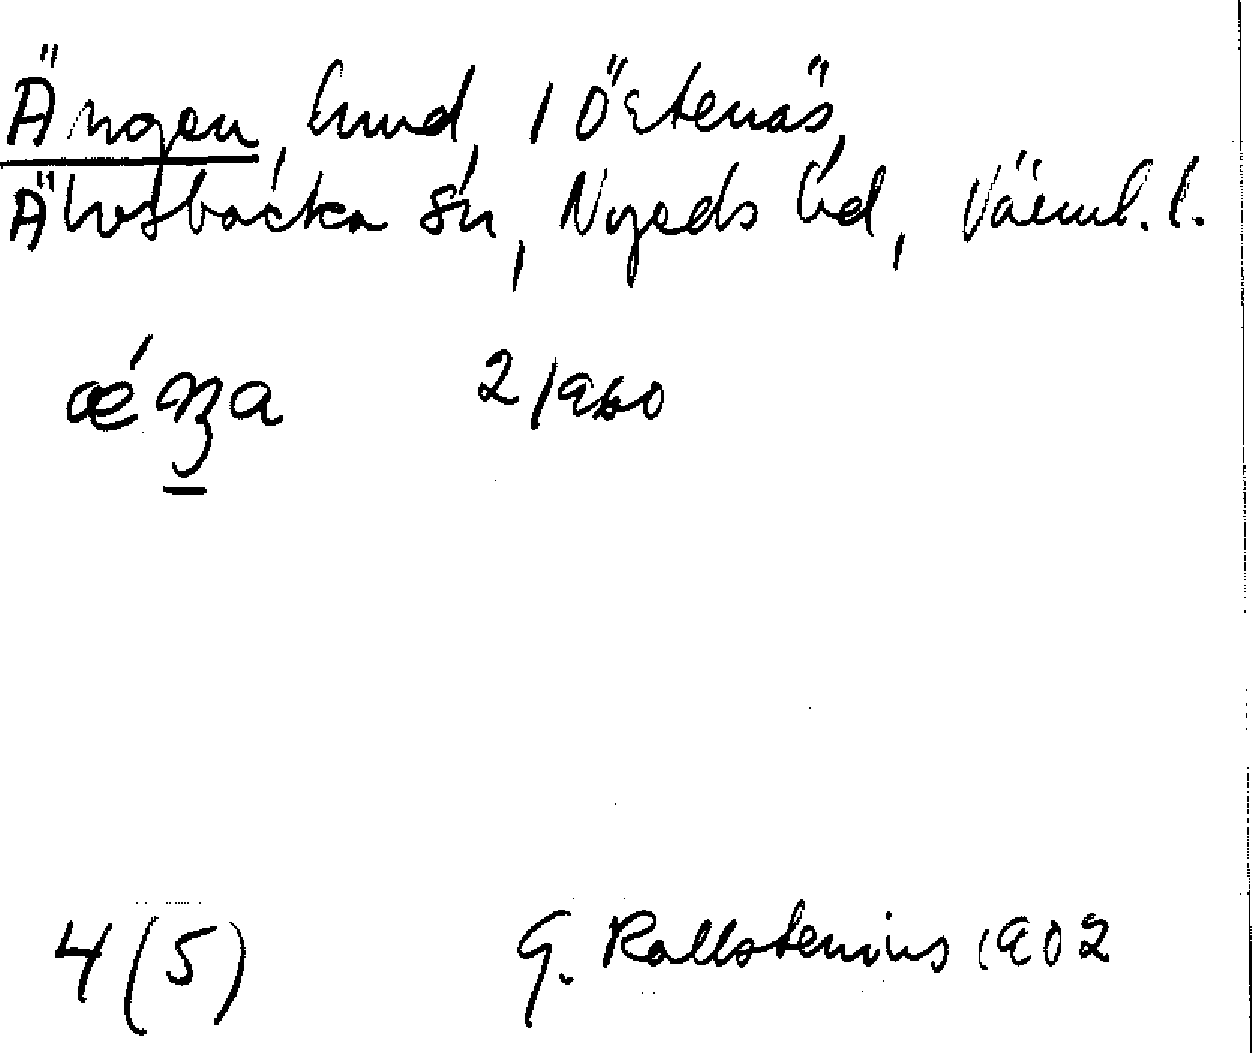 Ängen, hmd, i Östenäs,
Älvsbacka sn, Nyeds hd, Värml. l.
2/1960
4 (5) G. Kallstenius 1902